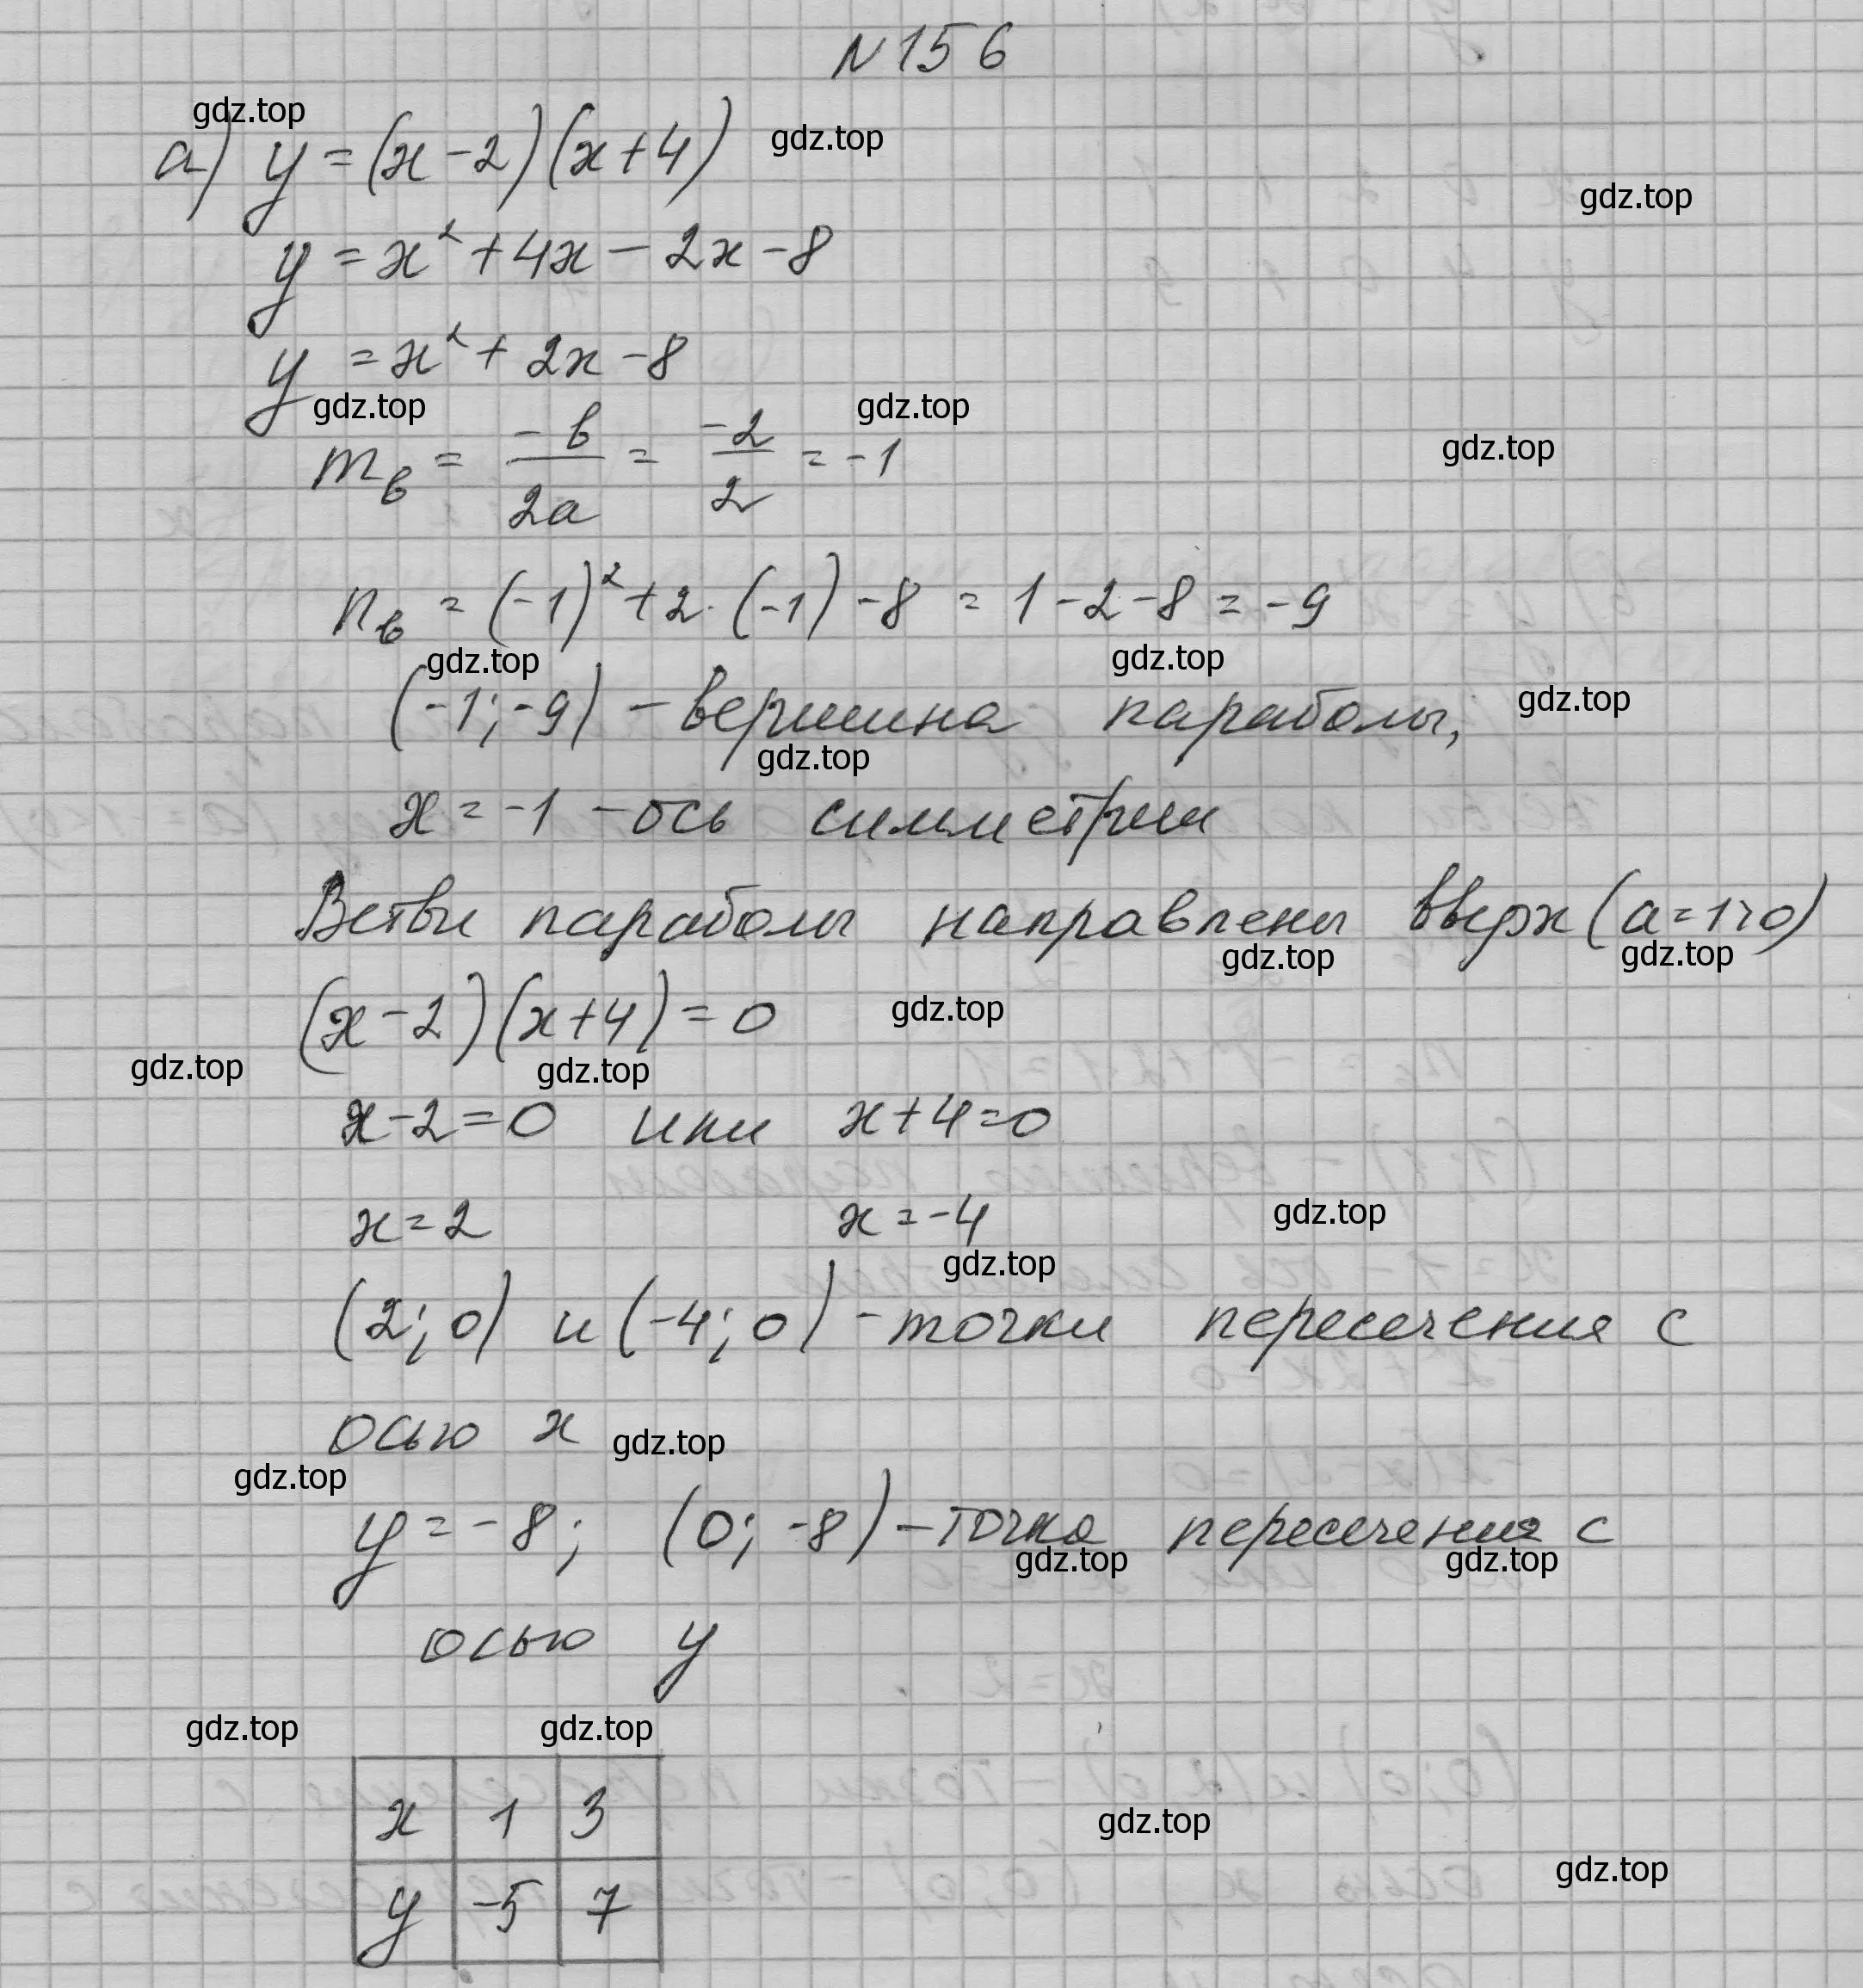 N 156
gdz.top
а) y = (x - 2)(x + 4) gdz.top
gdz.top
y = x² + 4x - 2x - 8
y = x² + 2x - 8
gdz.top gdz.top
gdz.top
m_в = -b/2a = -2/2 = -1
n_в = (-1)² + 2·(-1) - 8 = 1 - 2 - 8 = -9
gdz.top gdz.top
(-1; -9) - вершина параболы, gdz.top
gdz.top
x = -1 - ось симметрии
Ветви параболы направлены вверх (a = 1 > 0)
gdz.top gdz.top
(x - 2)(x + 4) = 0 gdz.top
gdz.top gdz.top
x - 2 = 0 или x + 4 = 0
x = 2 x = -4 gdz.top
gdz.top
(2; 0) и (-4; 0) - точки пересечения с
осью x gdz.top
gdz.top
y = -8; (0; -8) - точка пересечения с
gdz.top gdz.top
осью y
gdz.top gdz.top
x 1 3
gdz.top
gdz.top
y -5 7